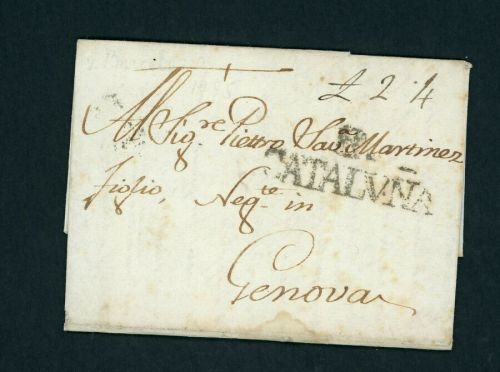 £ 2 4
Al Sig.re Pietro Sav. Martinez
CATALVÑA
figlio, Neg.te in
Genova